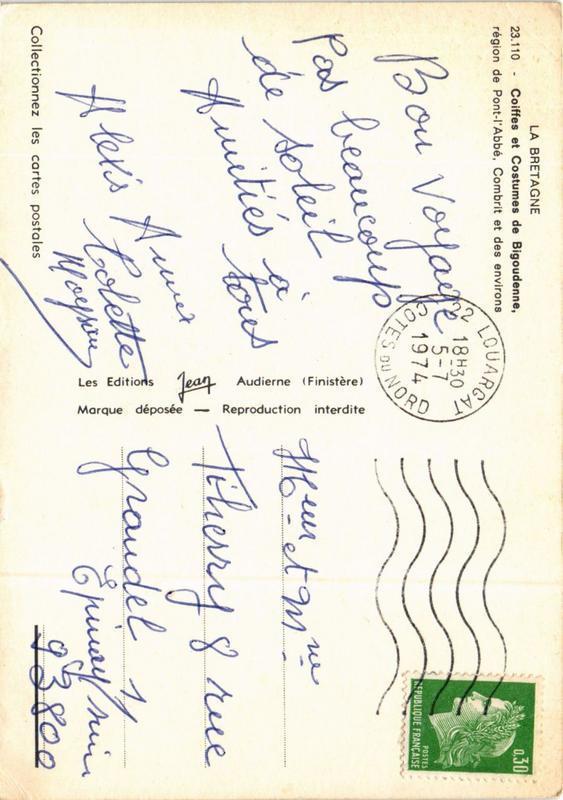 LA BRETAGNE
23.110 - Coiffes et Costumes de Bigoudenne,
région de Pont-l'Abbé, Combrit et des environs
Bon Voyage
Pas beaucoup
de soleil
Amitiés à
tous
Alexis Annie
Colette
Collectionnez les cartes postales
Les Editions Jean Audierne (Finistère)
Marque déposée — Reproduction interdite
22 LOUARGAT
18H30
5-7
1974
COTES DU NORD
REPUBLIQUE FRANÇAISE
POSTES
0,30
Meur et Mme
Thierry 8 rue
Epinay/
93800